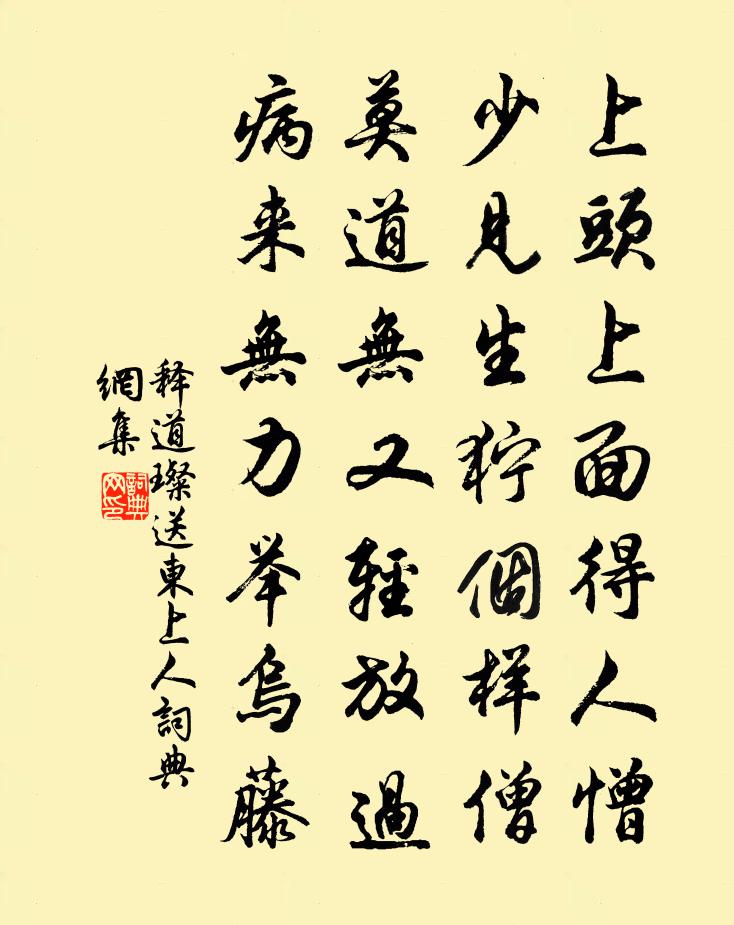 上頭上面得人憎
少見生狞個样僧
莫道無又輕放過
病来無力举烏藤
释道璨送東上人詞典
網集
詞典
网印